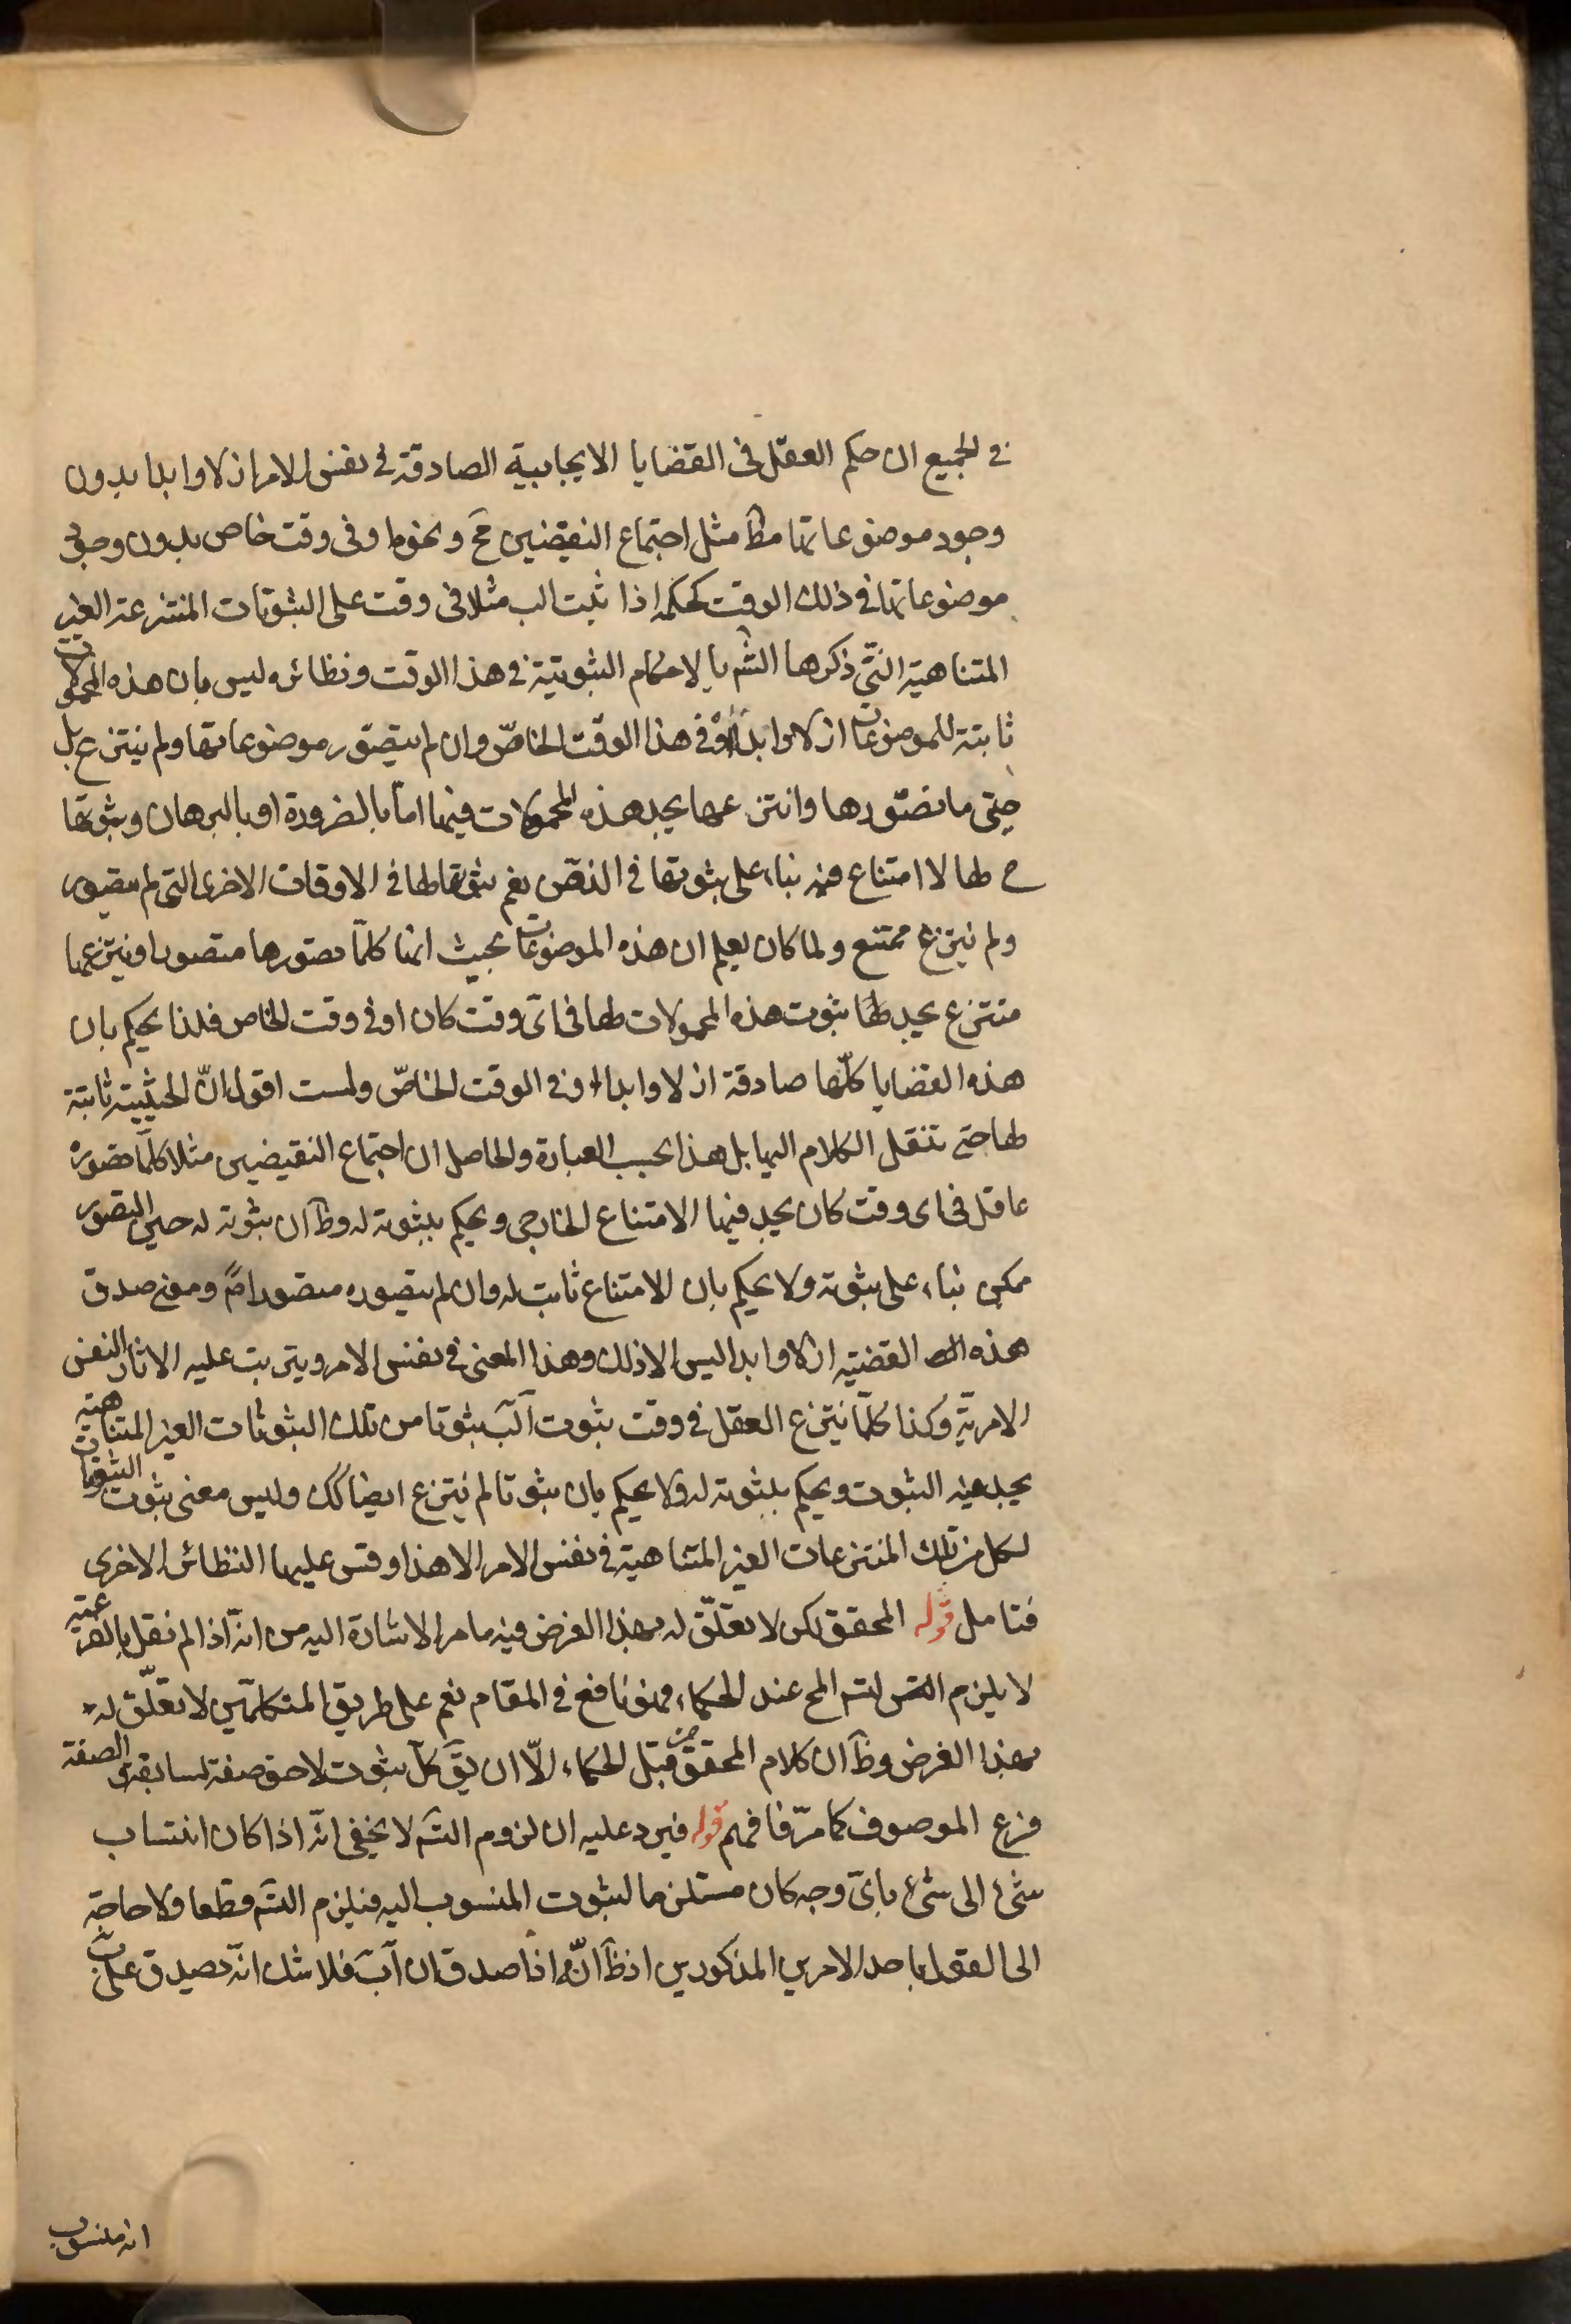 في الجميع ان حكم العقل فى القضايا الايجابية الصادقة في نفس الامر ازلا وابدا بدون
وجود موضوعاتها مط مثل اجتماع النقيضين مح ونحوها وفى وقت خاص بدون وجود
موضوعاتها في ذلك الوقت كحكمه اذا ثبت ا لب مثلا فى وقت على الثبوتات المنتزعة الغير
المتناهية التي ذكرها الش بالاحكام الثبوتية في هذا الوقت ونظائره ليس بان هذه المحمولات
ثابتة للموضوعات ازلا وابدا او في هذا الوقت الخاص وان لم يتصور موضوعاتها ولم ينتزع بل
حتى ما تصورها وانتزعها يجد هذه المحمولات فيها اما بالضرورة او بالبرهان وثبوتها
ح لها لا امتناع فيه بناء على ثبوتها في الذهن نعم ثبوتها لها في الاوقات الاخرى التي لم يتصور
ولم ينتزع ممتنع ولما كان يعلم ان هذه الموضوعات بحيث انها كلما تصورها متصور او ينتزعها
منتزع يجد لها ثبوت هذه المحمولات لها فى اى وقت كان او في وقت الخاص فلذا يحكم بان
هذه القضايا كلها صادقة ازلا وابدا او في الوقت الخاص ولست اقول ان الحيثية ثابتة
لها حتى تنقل الكلام اليها بل هذا بحسب العبارة والحاصل ان اجتماع النقيضين مثلا كلما تصوره
عاقل فى اى وقت كان يجد فيها الامتناع الخارجى ويحكم بثبوته له وظ ان ثبوته له حين التصور
ممكن بناء على ثبوته ولا يحكم بان الامتناع ثابت له وان لم يتصوره متصور اصً ومعنى صدق
هذه القضية ازلا وابدا ليس الا ذلك وهذا المعنى في نفس الامر ويترتب عليه الاثار النفس
الامرية وكذا كلما ينتزع العقل في وقت ثبوت ا لب ثبوتا من تلك الثبوتات الغير المتناهية
يجد فيه الثبوت ويحكم بثبوته له ولا يحكم بان ثبوتا لم ينتزع ايضا كك وليس معنى ثبوت الثبوتات
لكل من تلك المنتزعات الغير المتناهية في نفس الامر الا هذا وقس عليها النظائر الاخرى
فتامل قوله المحقق لكن لا تعلق له بهذا الغرض فيه ما مر الاشارة اليه من انه اذا لم نقل بالفرعية
لا يلزم التس المح عند الحكماء فهو نافع في المقام نعم على طريق المتكلمين لا تعلق له
بهذا الغرض وظ ان كلام المحقق من قبل الحكماء الا ان يق كل ثبوت لاحق صفة لسابقه والصفة
فرع الموصوف كما مر فافهم قوله فيرد عليه ان لزوم التس لا يخفى انه اذا كان انتساب
شئ الى شئ باى وجه كان مستلزما لثبوت المنسوب اليه فيلزم التس قطعا ولا حاجة
الى القول باحد الامرين المذكورين اذ ظ انه اذا صدق ان ا ب فلا شك انه يصدق على ب
انه منسوب